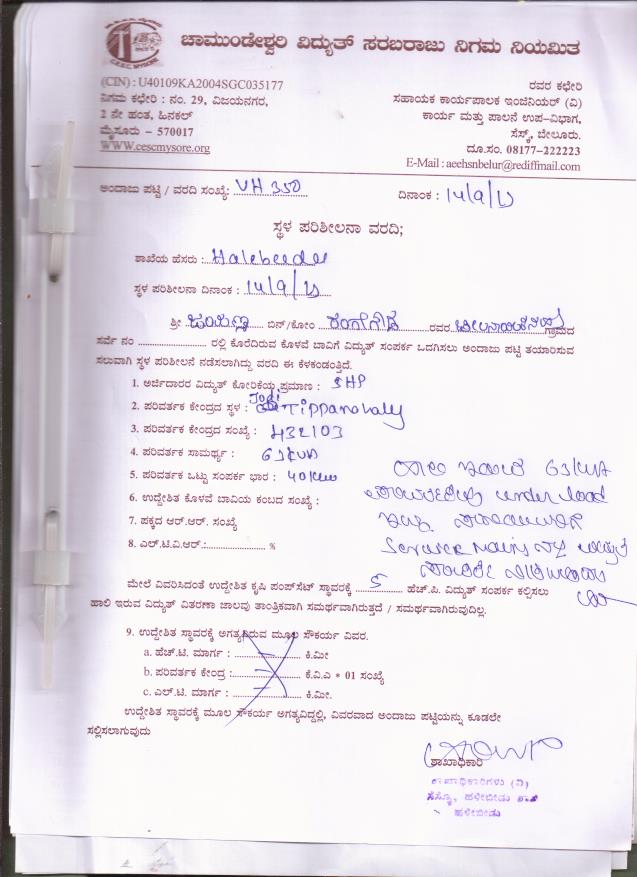 C.E.S.C. MYSORE
ಚಾಮುಂಡೇಶ್ವರಿ ವಿದ್ಯುತ್ ಸರಬರಾಜು ನಿಗಮ ನಿಯಮಿತ
(CIN) : U40109KA2004SGC035177
ನಿಗಮ ಕಛೇರಿ : ನಂ. 29, ವಿಜಯನಗರ,
2 ನೇ ಹಂತ, ಹಿನಕಲ್
ಮೈಸೂರು – 570017
WWW.cescmysore.org
ರವರ ಕಛೇರಿ
ಸಹಾಯಕ ಕಾರ್ಯಪಾಲಕ ಇಂಜಿನಿಯರ್ (ವಿ)
ಕಾರ್ಯ ಮತ್ತು ಪಾಲನೆ ಉಪ–ವಿಭಾಗ,
ಸೆಸ್ಕ್, ಬೇಲೂರು.
ದೂ.ಸಂ. 08177–222223
E-Mail : aeehsnbelur@rediffmail.com
ಅಂದಾಜು ಪಟ್ಟಿ / ವರದಿ ಸಂಖ್ಯೆ: VH 350 ದಿನಾಂಕ : 14/9/
ಸ್ಥಳ ಪರಿಶೀಲನಾ ವರದಿ;
ಶಾಖೆಯ ಹೆಸರು : Halebeedu
ಸ್ಥಳ ಪರಿಶೀಲನಾ ದಿನಾಂಕ : 14/9/
ಶ್ರೀ ಬಿನ್/ಕೋಂ ರಂಗೇಗೌಡ ರವರ ಗ್ರಾಮದ
ಸರ್ವೆ ನಂ .................... ರಲ್ಲಿ ಕೊರೆದಿರುವ ಕೊಳವೆ ಬಾವಿಗೆ ವಿದ್ಯುತ್ ಸಂಪರ್ಕ ಒದಗಿಸಲು ಅಂದಾಜು ಪಟ್ಟಿ ತಯಾರಿಸುವ
ಸಲುವಾಗಿ ಸ್ಥಳ ಪರಿಶೀಲನೆ ನಡೆಸಲಾಗಿದ್ದು ವರದಿ ಈ ಕೆಳಕಂಡಂತ್ತಿದೆ.
1. ಅರ್ಜಿದಾರರ ವಿದ್ಯುತ್ ಕೋರಿಕೆಯ ಪ್ರಮಾಣ : 5HP
2. ಪರಿವರ್ತಕ ಕೇಂದ್ರದ ಸ್ಥಳ : Jodi Tippanahally
3. ಪರಿವರ್ತಕ ಕೇಂದ್ರದ ಸಂಖ್ಯೆ : 432103
4. ಪರಿವರ್ತಕ ಸಾಮರ್ಥ್ಯ : 63KVA
5. ಪರಿವರ್ತಕ ಒಟ್ಟು ಸಂಪರ್ಕ ಭಾರ : 40
6. ಉದ್ದೇಶಿತ ಕೊಳವೆ ಬಾವಿಯ ಕಂಬದ ಸಂಖ್ಯೆ :
7. ಪಕ್ಕದ ಆರ್.ಆರ್. ಸಂಖ್ಯೆ
8. ಎಲ್.ಟಿ.ವಿ.ಆರ್.:.................... %
63KVA
under load
Service Mains
ಮೇಲೆ ವಿವರಿಸಿದಂತೆ ಉದ್ದೇಶಿತ ಕೃಷಿ ಪಂಪ್‌ಸೆಟ್ ಸ್ಥಾವರಕ್ಕೆ 5 ಹೆಚ್.ಪಿ. ವಿದ್ಯುತ್ ಸಂಪರ್ಕ ಕಲ್ಪಿಸಲು
ಹಾಲಿ ಇರುವ ವಿದ್ಯುತ್ ವಿತರಣಾ ಜಾಲವು ತಾಂತ್ರಿಕವಾಗಿ ಸಮರ್ಥವಾಗಿರುತ್ತದೆ / ಸಮರ್ಥವಾಗಿರುವುದಿಲ್ಲ.
9. ಉದ್ದೇಶಿತ ಸ್ಥಾವರಕ್ಕೆ ಅಗತ್ಯವಿರುವ ಮೂಲ ಸೌಕರ್ಯ ವಿವರ.
a. ಹೆಚ್.ಟಿ. ಮಾರ್ಗ : .................... ಕಿ.ಮೀ
b. ಪರಿವರ್ತಕ ಕೇಂದ್ರ :.................... ಕೆ.ವಿ.ಎ * 01 ಸಂಖ್ಯೆ
c. ಎಲ್.ಟಿ ಮಾರ್ಗ : .................... ಕಿ.ಮೀ.
ಉದ್ದೇಶಿತ ಸ್ಥಾವರಕ್ಕೆ ಮೂಲ ಸೌಕರ್ಯ ಅಗತ್ಯವಿದ್ದಲ್ಲಿ, ವಿವರವಾದ ಅಂದಾಜು ಪಟ್ಟಿಯನ್ನು ಕೂಡಲೇ
ಸಲ್ಲಿಸಲಾಗುವುದು
ಶಾಖಾಧಿಕಾರಿ
ಶಾಖಾಧಿಕಾರಿಗಳು (ವಿ)
ಸೆಸ್ಕಾಂ, ಹಳೇಬೀಡು ಶಾಖೆ
ಹಳೇಬೀಡು